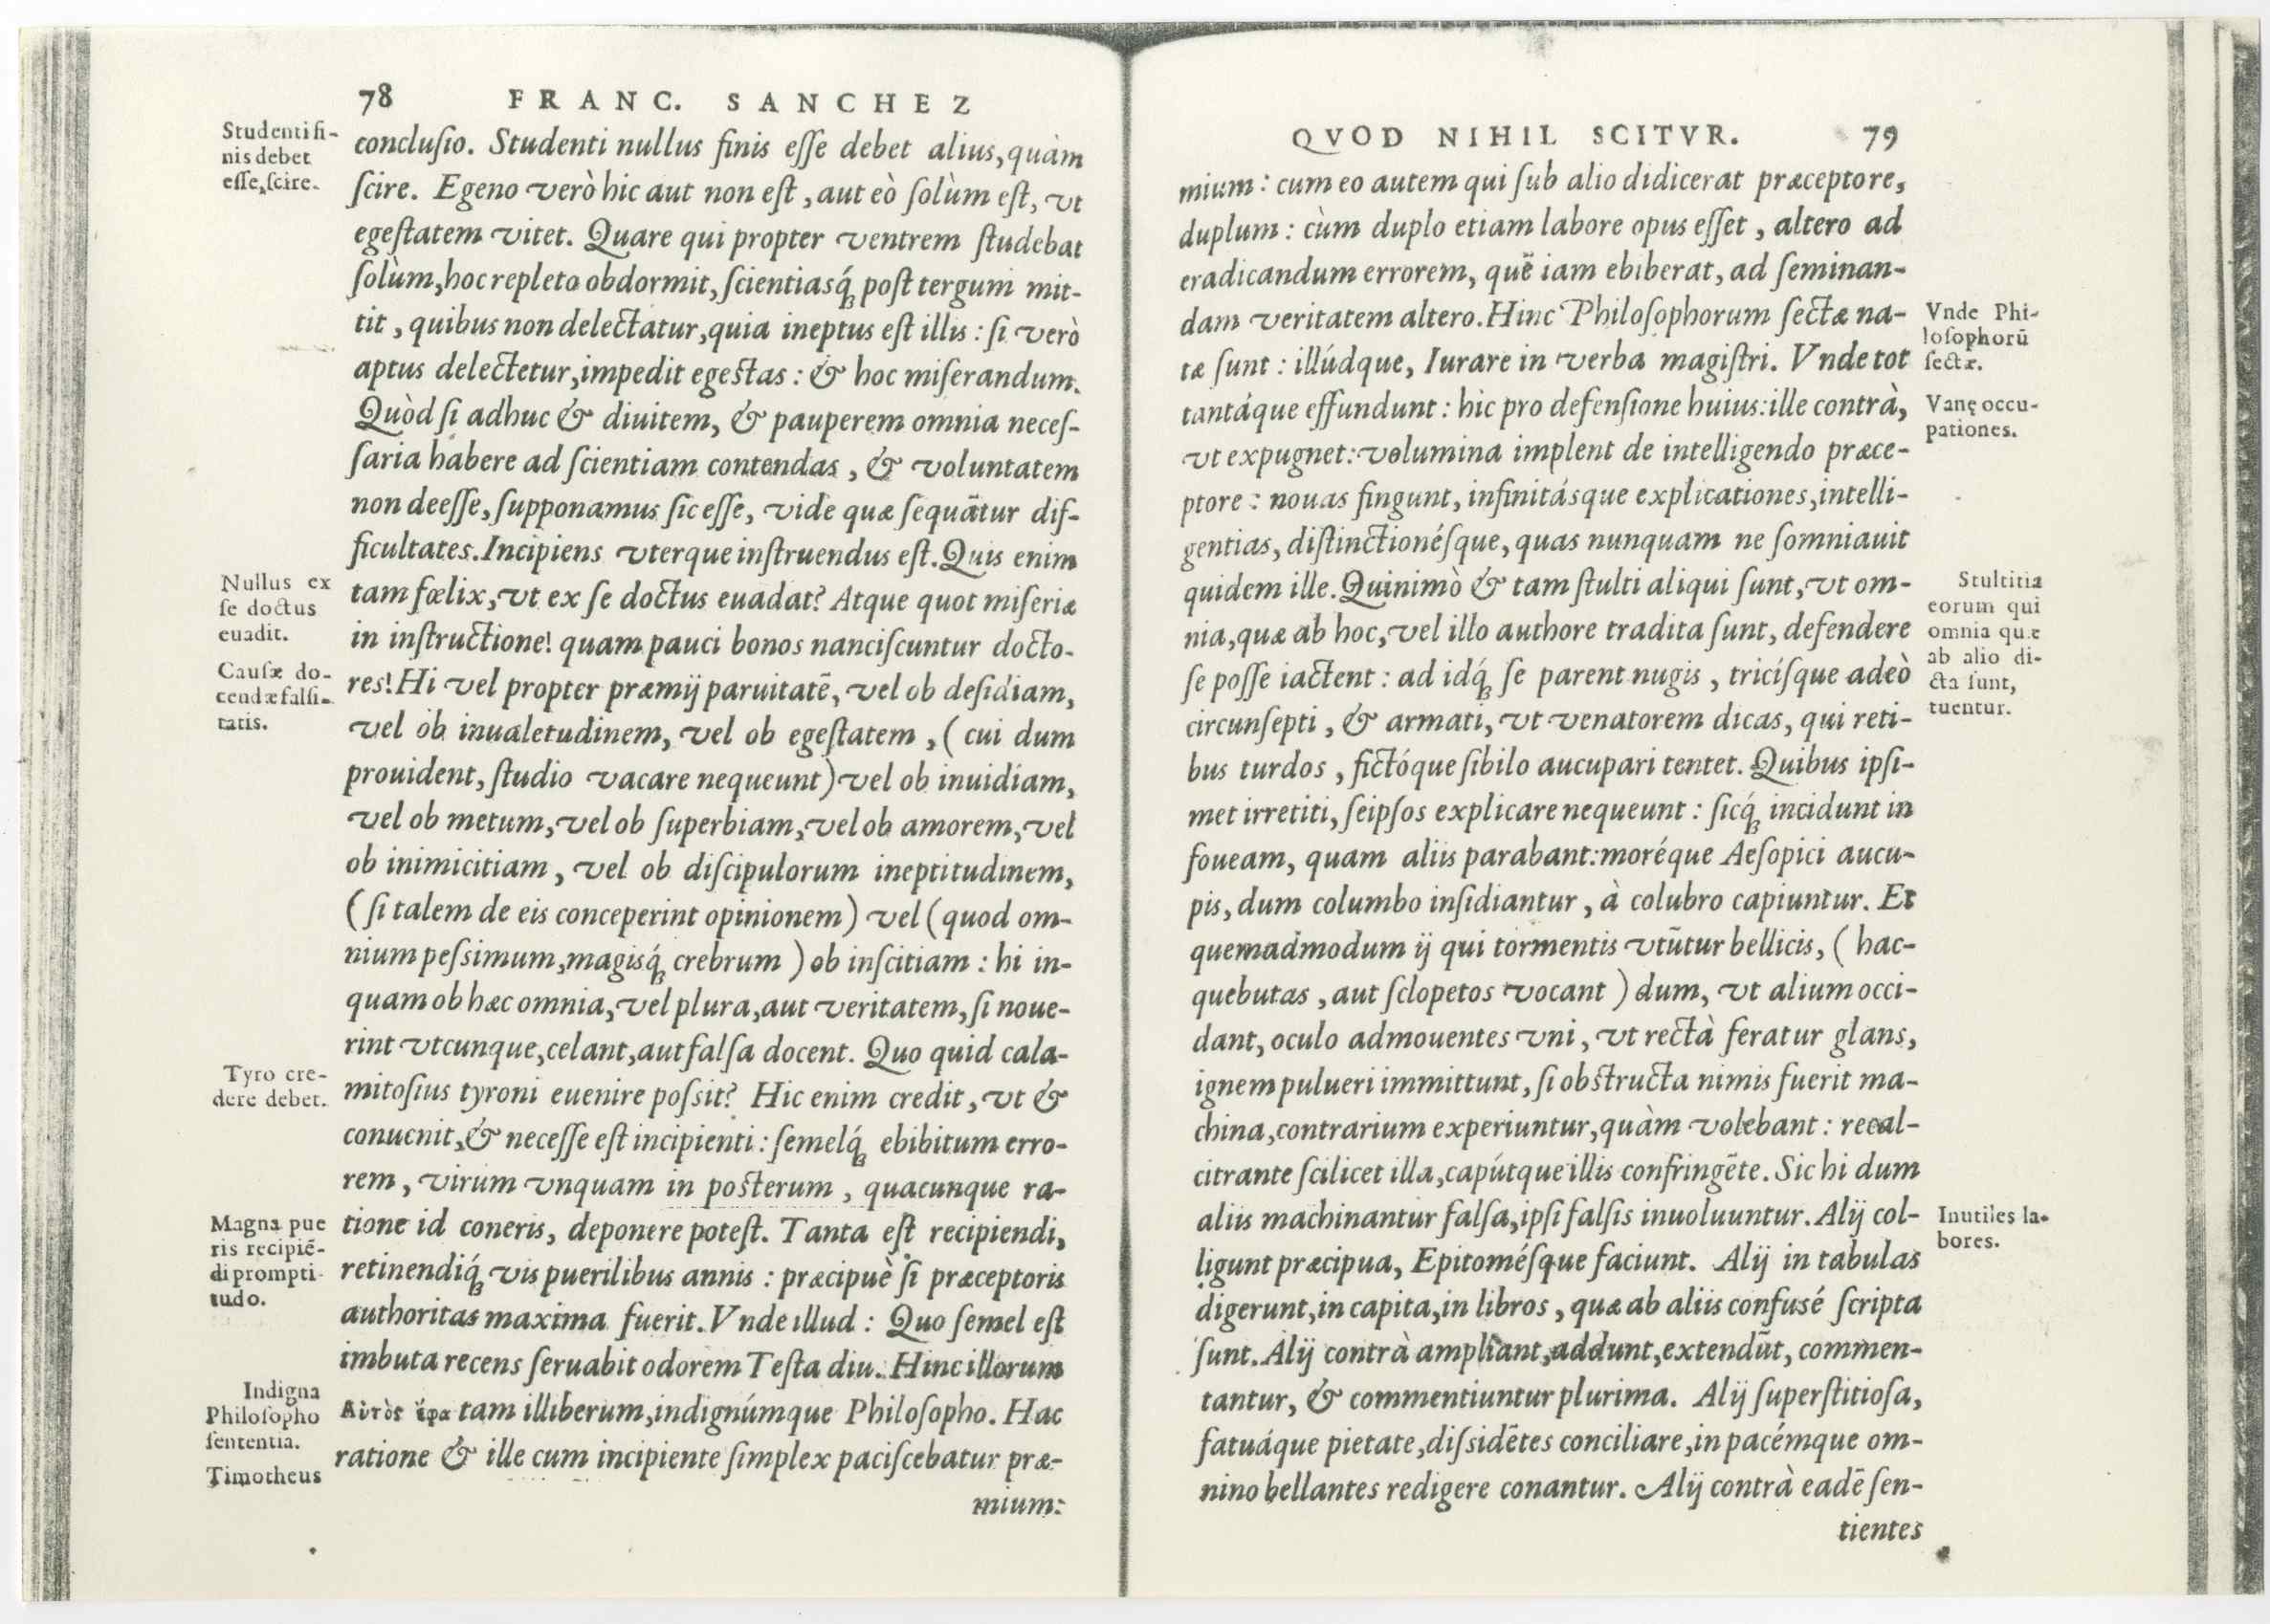 78 FRANC. SANCHEZ
Studenti fi-
nis debet
esse, scire.
conclusio. Studenti nullus finis esse debet alius, quàm
scire. Egeno verò hic aut non est, aut eò solùm est, vt
egestatem vitet. Quare qui propter ventrem studebat
solùm, hoc repleto obdormit, scientiasq́; post tergum mit-
tit, quibus non delectatur, quia ineptus est illis: si verò
aptus delectetur, impedit egestas: & hoc miserandum.
Quòd si adhuc & diuitem, & pauperem omnia neces-
saria habere ad scientiam contendas, & voluntatem
non deesse, supponamus sic esse, vide quæ sequātur dif-
ficultates. Incipiens vterque instruendus est. Quis enim
Nullus ex
se doctus
euadit.
tam fœlix, vt ex se doctus euadat? Atque quot miseriæ
in instructione! quam pauci bonos nanciscuntur docto-
Causæ do-
cendæ falsi-
tatis.
res! Hi vel propter præmij paruitatē, vel ob desidiam,
vel ob inualetudinem, vel ob egestatem, (cui dum
prouident, studio vacare nequeunt) vel ob inuidiam,
vel ob metum, vel ob superbiam, vel ob amorem, vel
ob inimicitiam, vel ob discipulorum ineptitudinem,
(si talem de eis conceperint opinionem) vel (quod om-
nium pessimum, magisq́; crebrum) ob inscitiam: hi in-
quam ob hæc omnia, vel plura, aut veritatem, si noue-
rint vtcunque, celant, aut falsa docent. Quo quid cala-
Tyro cre-
dere debet.
mitosius tyroni euenire possit? Hic enim credit, vt &
conuenit, & necesse est incipienti: semelq́; ebibitum erro-
rem, virum vnquam in posterum, quacunque ra-
Magna pue
ris recipiē-
di prompti-
tudo.
tione id coneris, deponere potest. Tanta est recipiendi,
retinendiq́; vis puerilibus annis: præcipuè si præceptoris
authoritas maxima fuerit. Vnde illud: Quo semel est
imbuta recens seruabit odorem Testa diu. Hinc illorum
Indigna
Philosopho
sententia.
Αὐτὸς ἔφα tam illiberum, indignúmque Philosopho. Hac
Timotheus
ratione & ille cum incipiente simplex paciscebatur præ-
mium:
QVOD NIHIL SCITVR. 79
mium: cum eo autem qui sub alio didicerat præceptore,
duplum: cùm duplo etiam labore opus esset, altero ad
eradicandum errorem, quē iam ebiberat, ad seminan-
dam veritatem altero. Hinc Philosophorum sectæ na-
Vnde Phi-
losophorū
sectæ.
tæ sunt: illúdque, Iurare in verba magistri. Vnde tot
tantáque effundunt: hic pro defensione huius: ille contrà,
Vanę occu-
pationes.
vt expugnet: volumina implent de intelligendo præce-
ptore: nouas fingunt, infinitásque explicationes, intelli-
gentias, distinctionésque, quas nunquam ne somniauit
quidem ille. Quinimò & tam stulti aliqui sunt, vt om-
Stultitia
eorum qui
omnia quæ
ab alio di-
cta sunt,
tuentur.
nia, quæ ab hoc, vel illo authore tradita sunt, defendere
se posse iactent: ad idq́; se parent nugis, tricísque adeò
circunsepti, & armati, vt venatorem dicas, qui reti-
bus turdos, fictóque sibilo aucupari tentet. Quibus ipsi-
met irretiti, seipsos explicare nequeunt: sicq́; incidunt in
foueam, quam aliis parabant: moréque Aesopici aucu-
pis, dum columbo insidiantur, à colubro capiuntur. Et
quemadmodum ij qui tormentis vtūtur bellicis, (hac-
quebutas, aut sclopetos vocant) dum, vt alium occi-
dant, oculo admouentes vni, vt rectà feratur glans,
ignem pulueri immittunt, si obstructa nimis fuerit ma-
china, contrarium experiuntur, quàm volebant: recal-
citrante scilicet illa, capútque illis confringēte. Sic hi dum
aliis machinantur falsa, ipsi falsis inuoluuntur. Alij col-
Inutiles la-
bores.
ligunt præcipua, Epitomésque faciunt. Alij in tabulas
digerunt, in capita, in libros, quæ ab aliis confusé scripta
sunt. Alij contrà ampliant, addunt, extendūt, commen-
tantur, & commentiuntur plurima. Alij superstitiosa,
fatuáque pietate, dissidētes conciliare, in pacémque om-
nino bellantes redigere conantur. Alij contrà eadē sen-
tientes